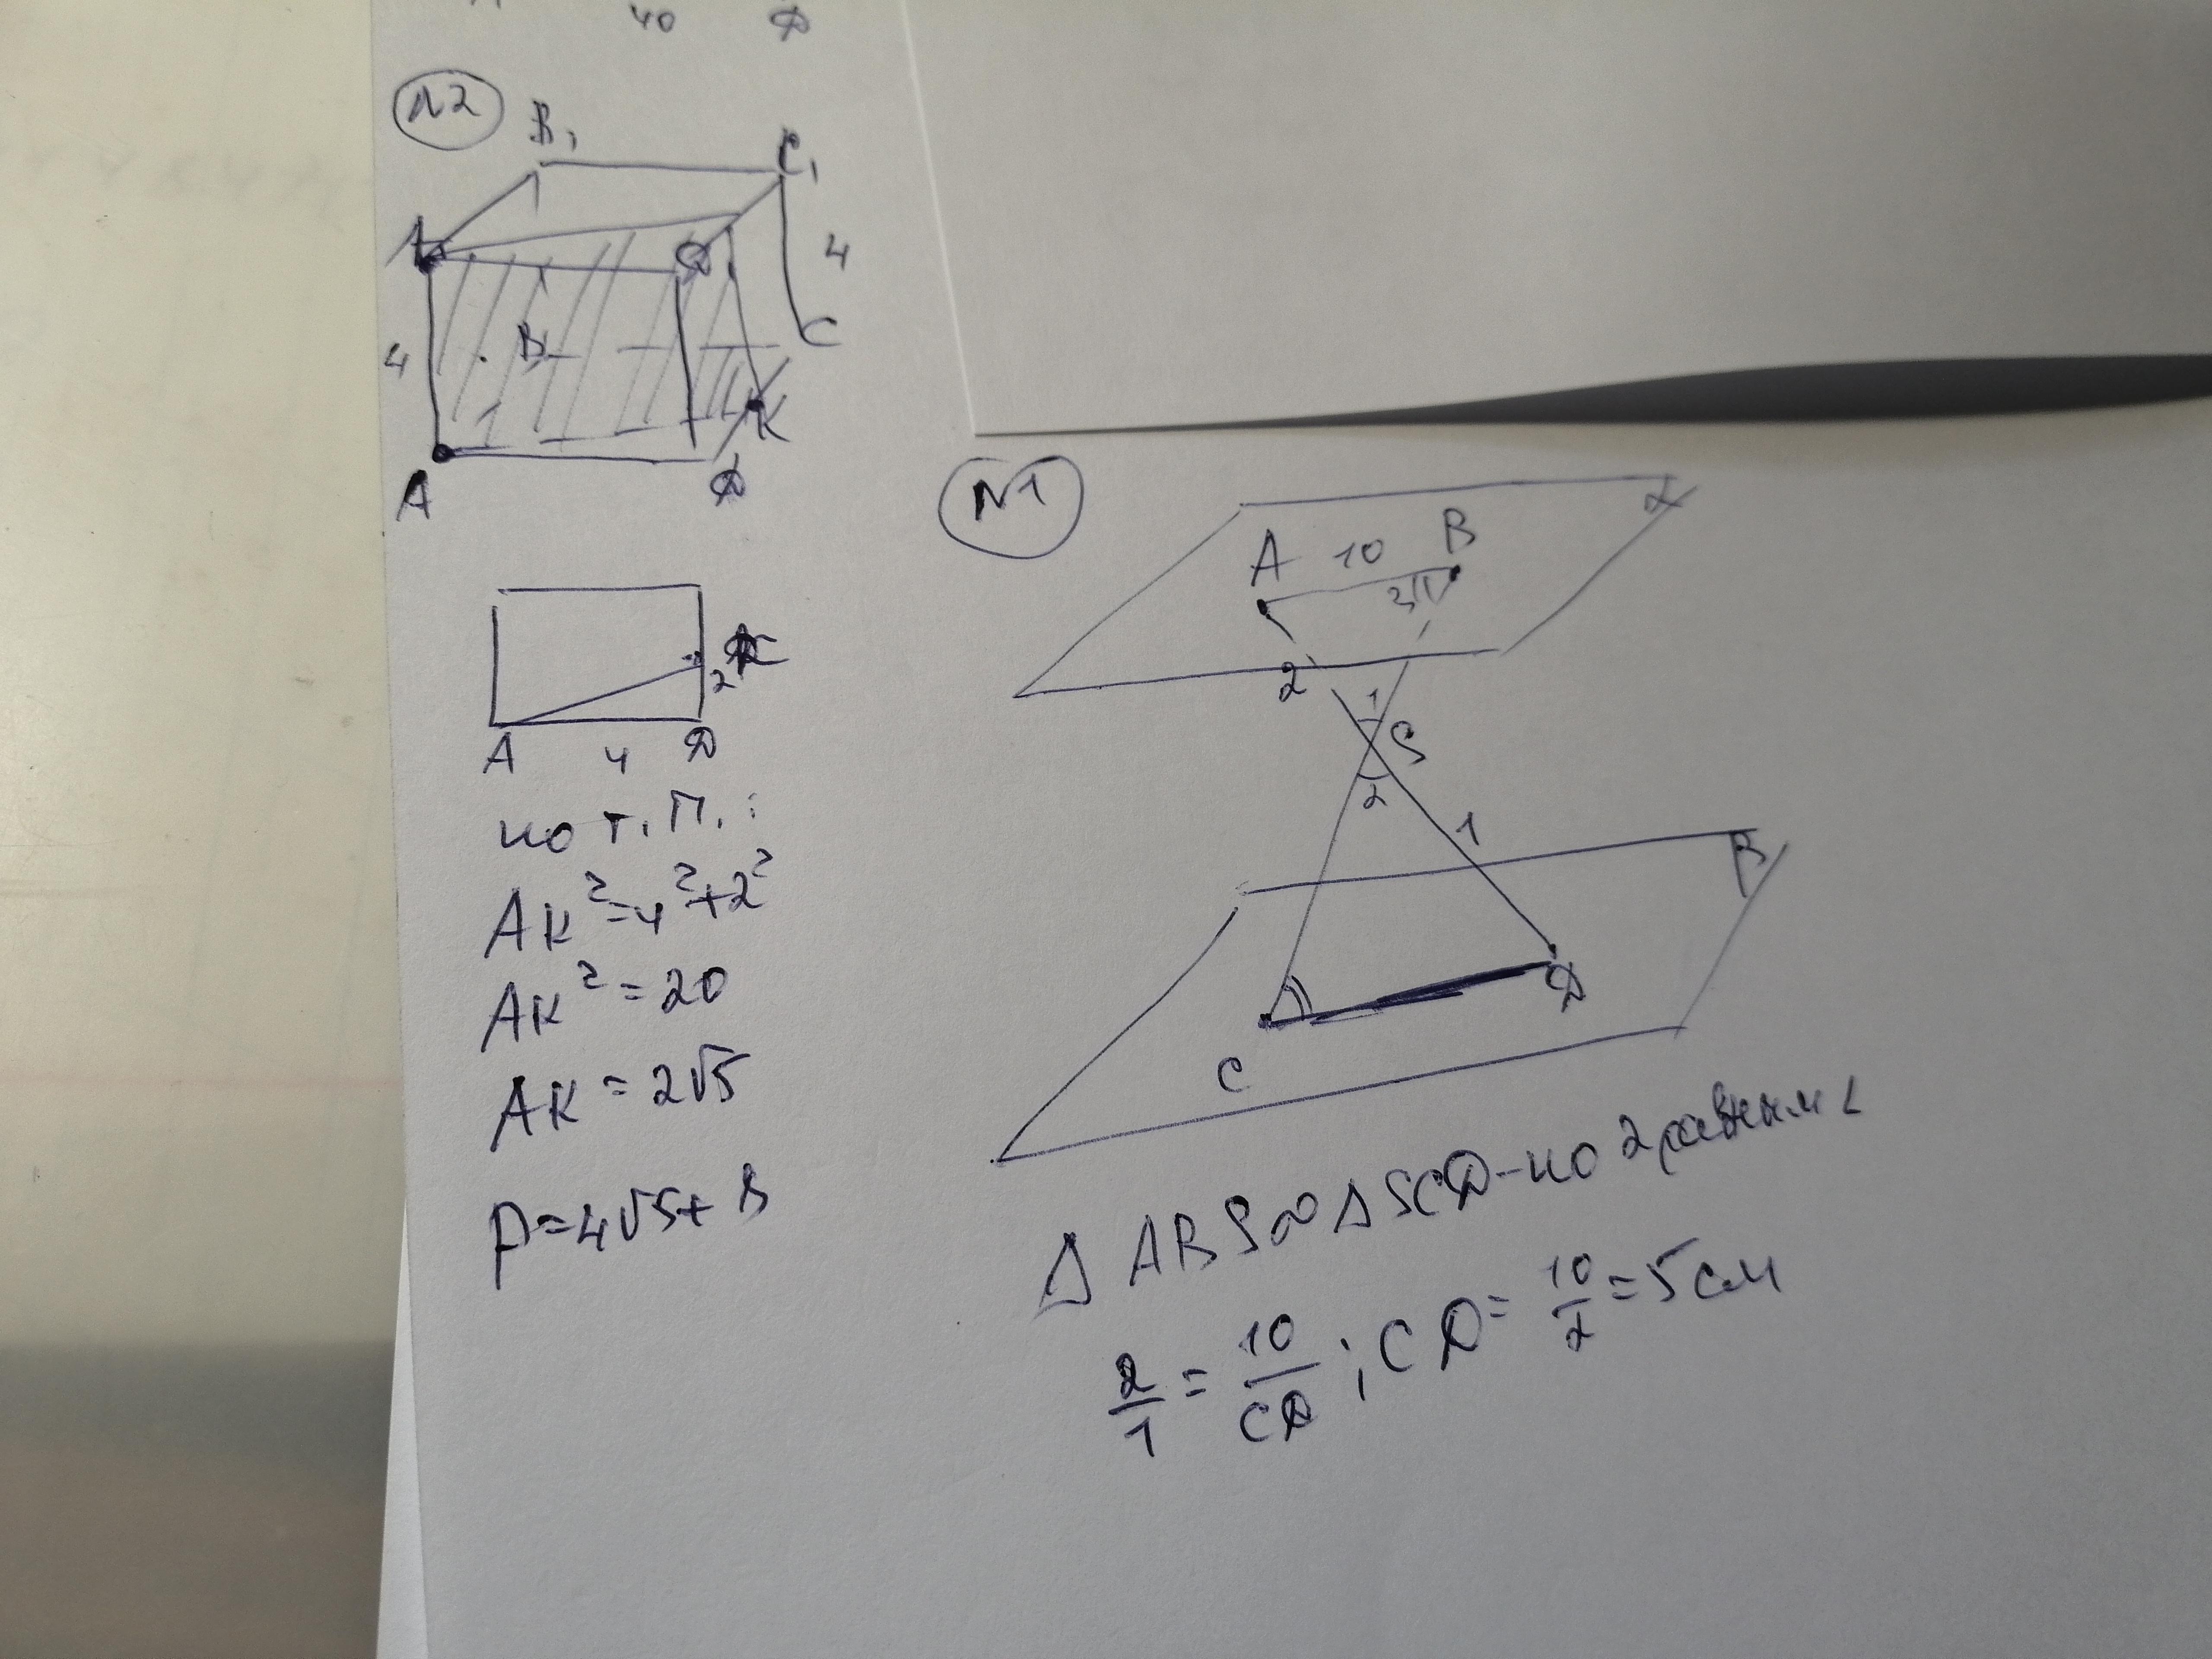 40 D
N2
B₁
C₁
A₁
D₁
4
4
B
C
K
A
D
K
2
A 4 D
по т. П. :
AK²=4²+2²
AK²=20
AK=2√5
P=4√5+8
N1
α
A 10 B
2
1
S
2
1
β
D
C
Δ ABS ∾ Δ SCD - по 2 равным ∠
2/1 = 10/CD ; CD = 10/2 = 5 см